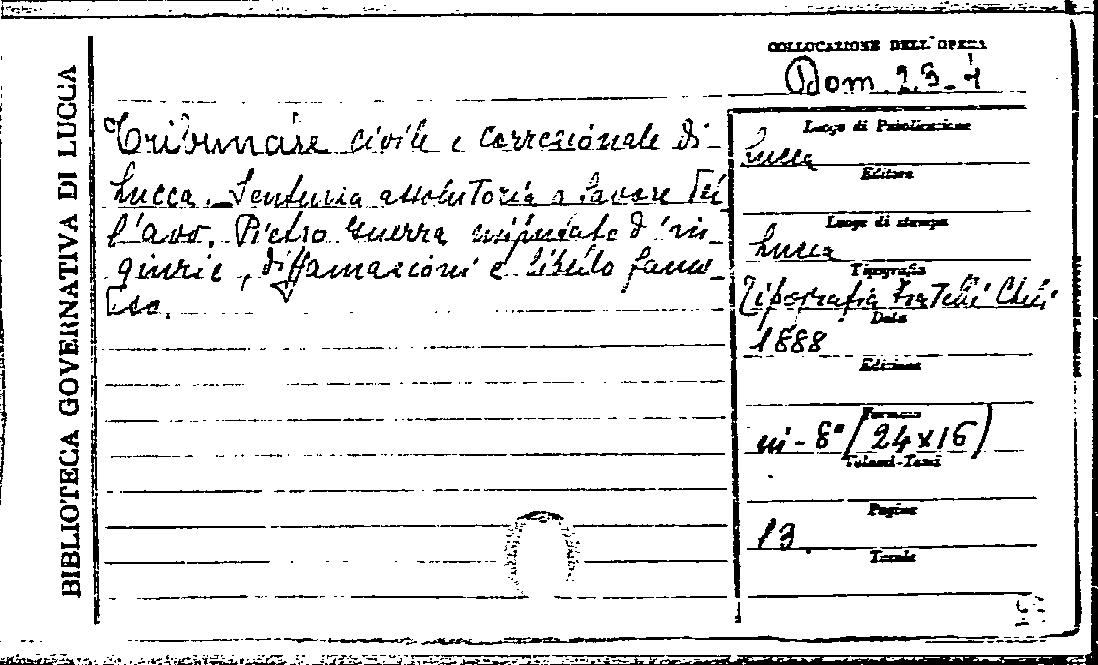 BIBLIOTECA GOVERNATIVA DI LUCCA
COLLOCAZIONE DELL'OPERA
Dom. 23-4
Tribunale civile e correzionale di
Lucca. Sentenza assolutoria a favore del
l'avv. Pietro Guerra imputato d'in-
giurie, diffamazioni e libello famo-
so.
Luogo di Pubblicazione
Lucca
Editore
Luogo di stampa
Lucca
Tipografia
Tipografia Fratelli Cheli
Data
1888
Edizione
Formato
in-8° (24x16)
Volumi-Tomi
Pagine
13
Tavole